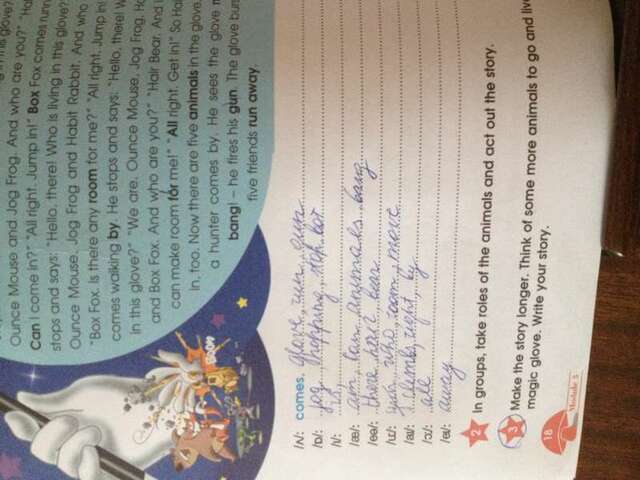 in this glove?
Ounce Mouse and Jog Frog. And who are you?" "Ha
Can I come in?" "All right. Jump in!" Box Fox comes runn
stops and says: "Hello, there! Who is living in this glove?
Ounce Mouse, Jog Frog and Habit Rabbit. And who
"Box Fox. Is there any room for me?" "All right. Jump in!
comes walking by. He stops and says: "Hello, there! W
in this glove?" "We are. Ounce Mouse, Jog Frog, Ha
and Box Fox. And who are you?" "Hair Bear. And
can make room for me!" "All right. Get in!" So Hai
in, too. Now there are five animals in the glove.
a hunter comes by. He sees the glove
bang! – he fires his gun. The glove burs
five friends run away.
/ʌ/: comes, glove, run, gun
/ɒ/: jog, stop, box
/ɪ/: is,
/æ/: am, animals, bang
/eə/: there, hair, bear
/uː/: you, who, room, move
/aɪ/: right, by
/ɔː/: all
/eɪ/: away
2 In groups, take roles of the animals and act out the story.
3 Make the story longer. Think of some more animals to go and live
magic glove. Write your story.
18 Module 5